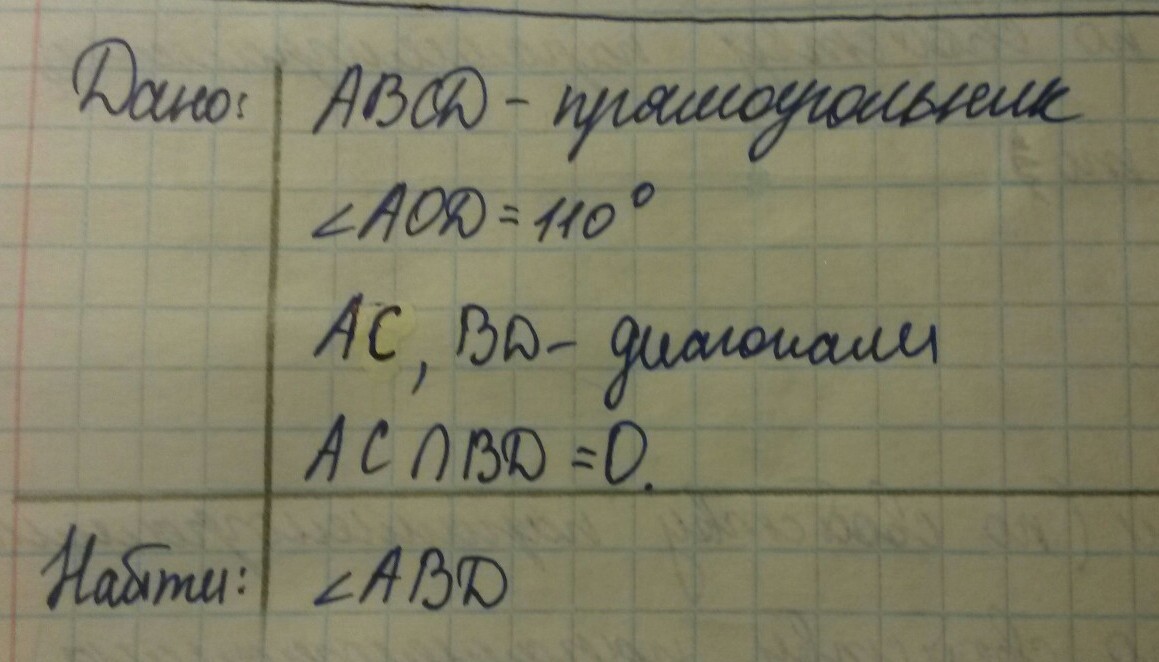 Дано: ABCD - прямоугольник
∠AOD = 110°
AC, BD - диагонали
AC ∩ BD = O.
Найти: ∠ABD